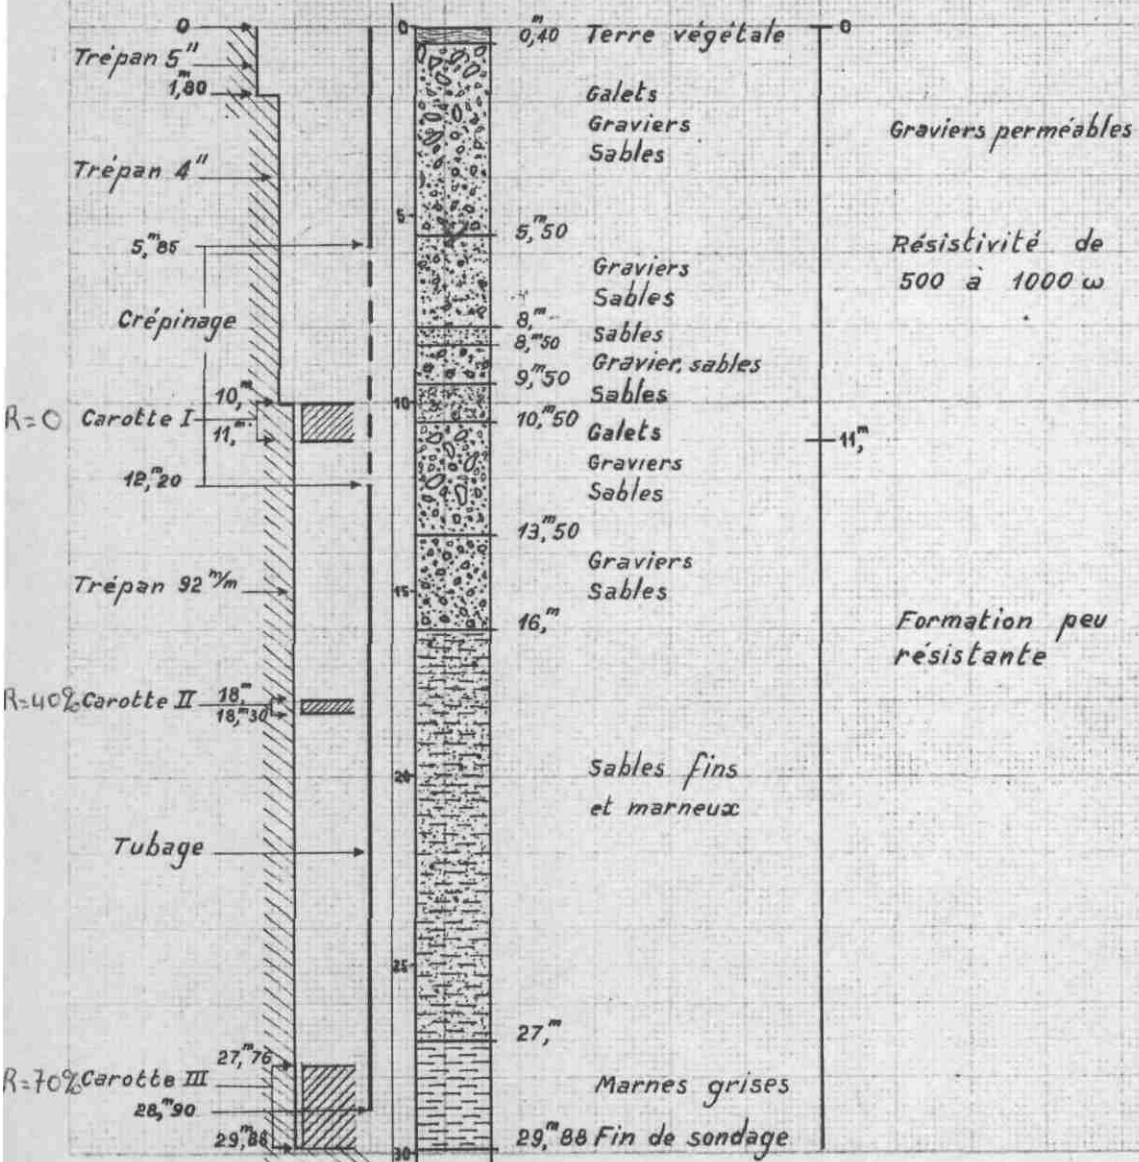 0
Trépan 5"
1,m80
Trépan 4"
5,m85
Crépinage
10,m
R=0 Carotte I
11,m
12,m20
Trépan 92 m/m
R=40% Carotte II 18,m
18,m30
Tubage
27,m76
R=70% Carotte III
28,m90
29,m88
0
5
10
15
20
25
30
0,m40 Terre végétale
Galets
Graviers
Sables
5,m50
Graviers
Sables
8,m
Sables
8,m50
Gravier, sables
9,m50
Sables
10,m50
Galets
Graviers
Sables
13,m50
Graviers
Sables
16,m
Sables fins
et marneux
27,m
Marnes grises
29,m88 Fin de sondage
0
Graviers perméables
Résistivité de
500 à 1000 ω
11,m
Formation peu
résistante